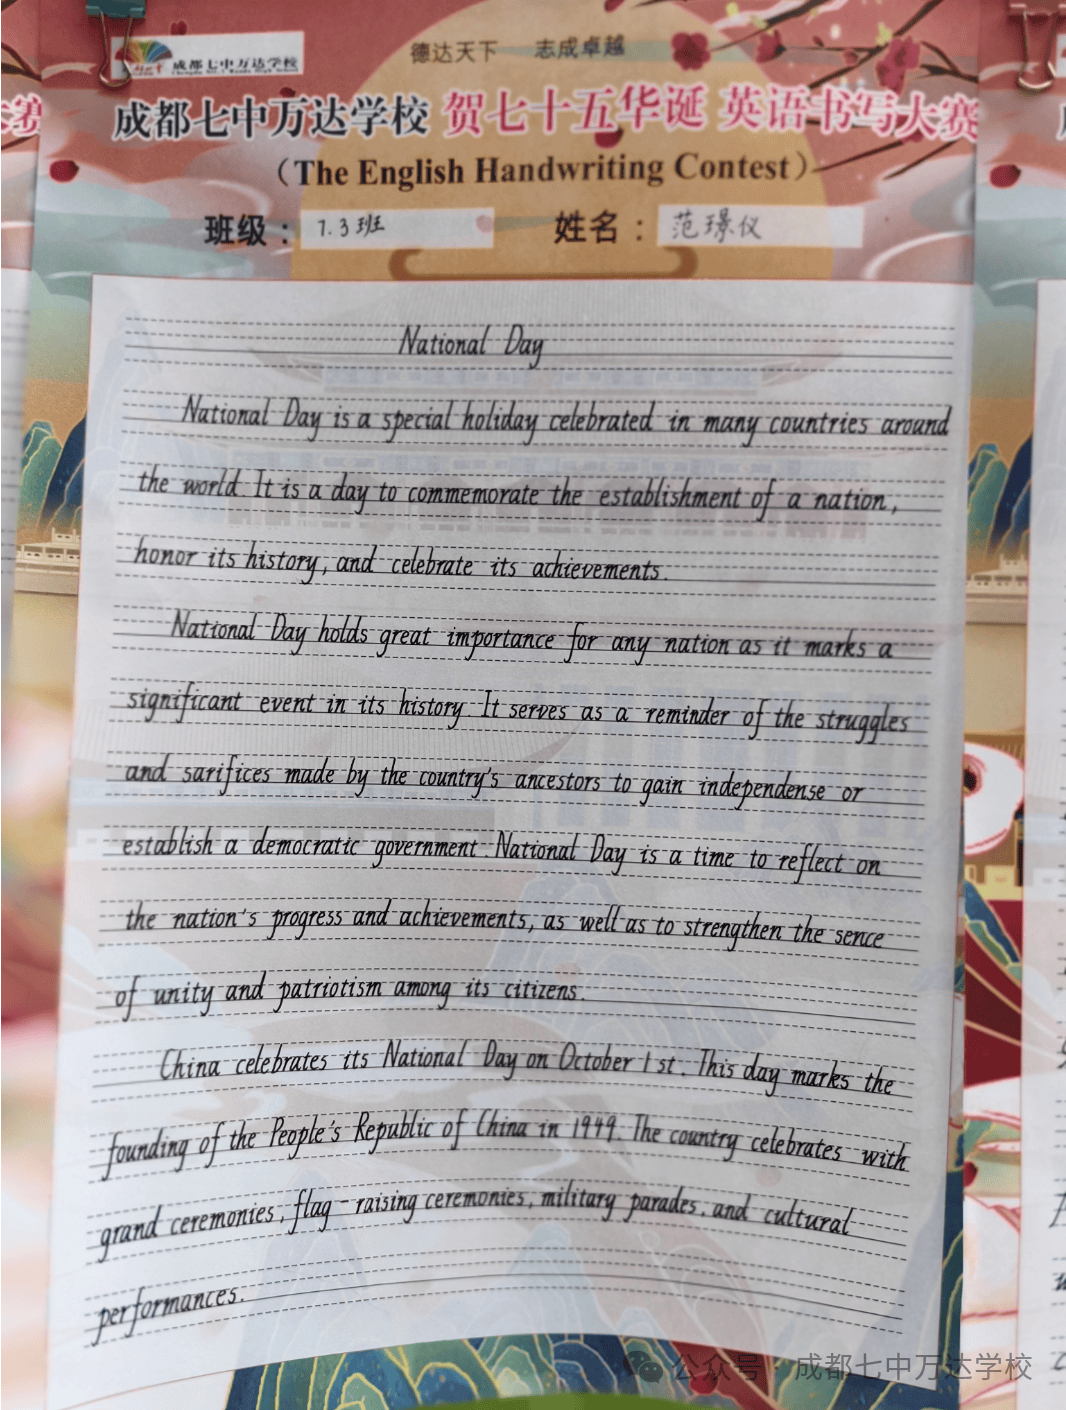 德达天下 志成卓越
成都七中万达学校
成都七中万达学校 贺七十五华诞 英语书写大赛
（The English Handwriting Contest）
班级： 7.3班 姓名： 范璟仪
National Day
National Day is a special holiday celebrated in many countries around
the world. It is a day to commemorate the establishment of a nation,
honor its history, and celebrate its achievements.
National Day holds great importance for any nation as it marks a
significant event in its history. It serves as a reminder of the struggles
and sarifices made by the country's ancestors to gain independense or
establish a democratic government. National Day is a time to reflect on
the nation's progress and achievements, as well as to strengthen the sence
of unity and patriotism among its citizens.
China celebrates its National Day on October 1st. This day marks the
founding of the People's Republic of China in 1949. The country celebrates with
grand ceremonies, flag-raising ceremonies, military parades, and cultural
performances.
公众号·成都七中万达学校